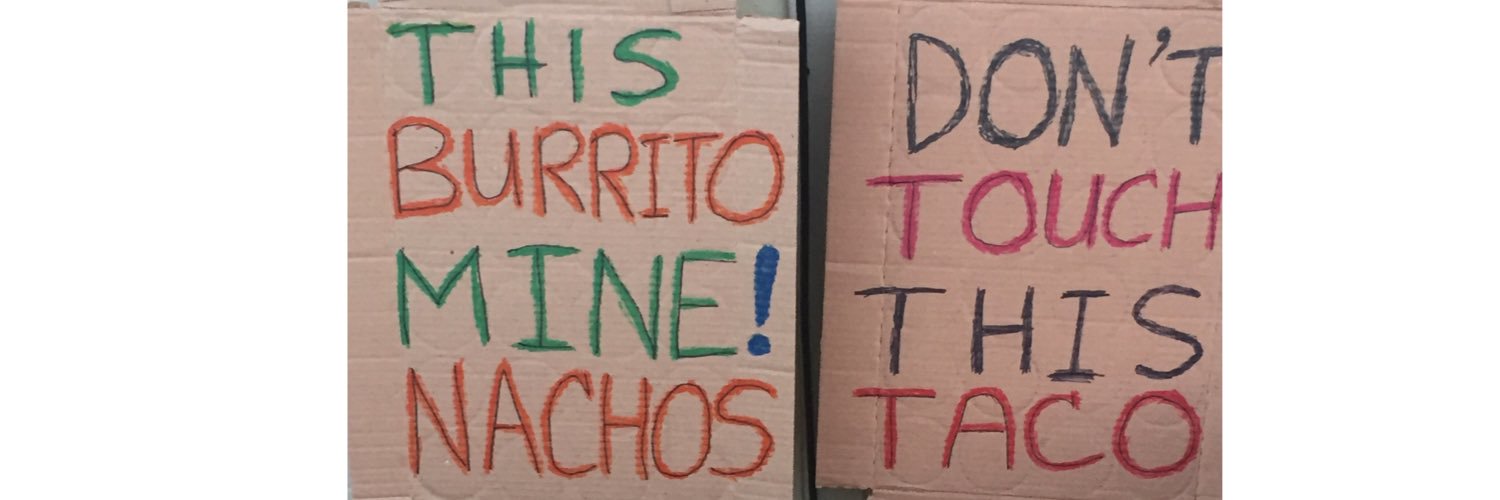 THIS
BURRITO
MINE!
NACHOS
DON'T
TOUCH
THIS
TACO